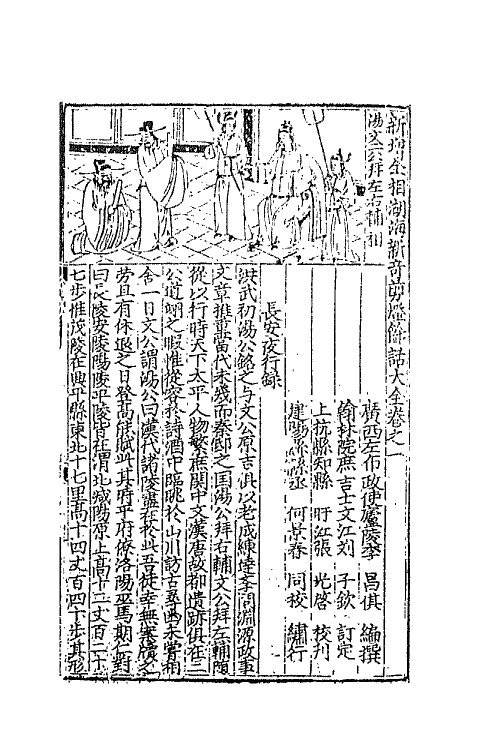 新增全相湖海新奇剪燈餘話大全卷之一
湯文六拜左右輔相
廣西左布政使廬陵李 昌俱 編撰
翰林院庶吉士文江刘 子欽 訂定
上杭縣知縣 旴江張 光啓 校刊
建陽縣縣丞 何景春 同校 繡行
長安夜行録
洪武初湯公銘之与文公原吉俱以老成練達李問淵源政事
文章推重當代未幾而秦邸之国湯公拜右輔文公拜左輔隨
從以行時天下太平人物繁庶関中文漢唐故都遺跡俱在二
公道翊之暇惟從容於詩酒中臨眺於山川訪古尋幽未嘗相
舍一日文公謂湯公曰漢代諸陵寢在於此吾徒幸無案牘之
劳且有休退之日登高能賦此其時乎府僚洛陽巫馬期仁對
曰長陵安陵陽陵平陵皆在渭北咸陽原上高十二丈百二十
七步惟茂陵在興平縣東北十七里高十四丈百四十步其形